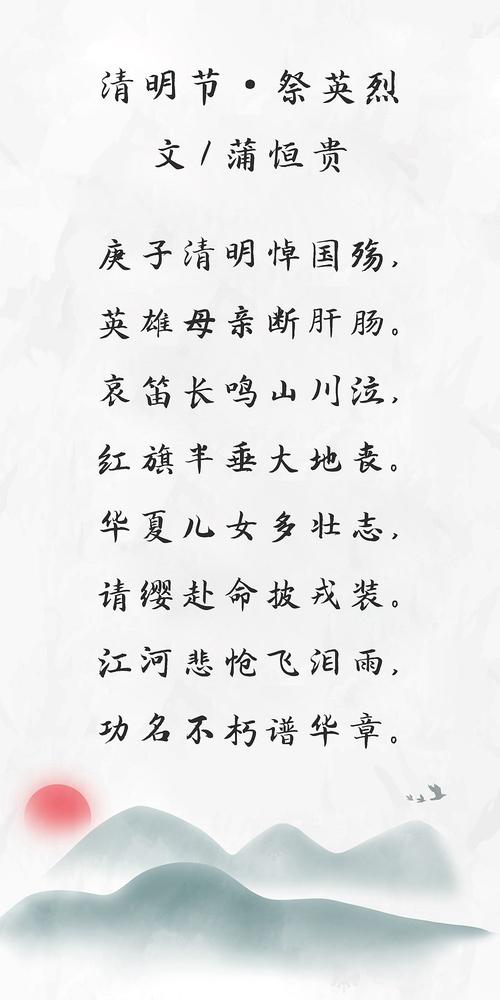 清明节·祭英烈
文/蒲恒贵
庚子清明悼国殇,
英雄母亲断肝肠。
哀笛长鸣山川泣,
红旗半垂大地丧。
华夏儿女多壮志,
请缨赴命披戎装。
江河悲怆飞泪雨,
功名不朽谱华章。